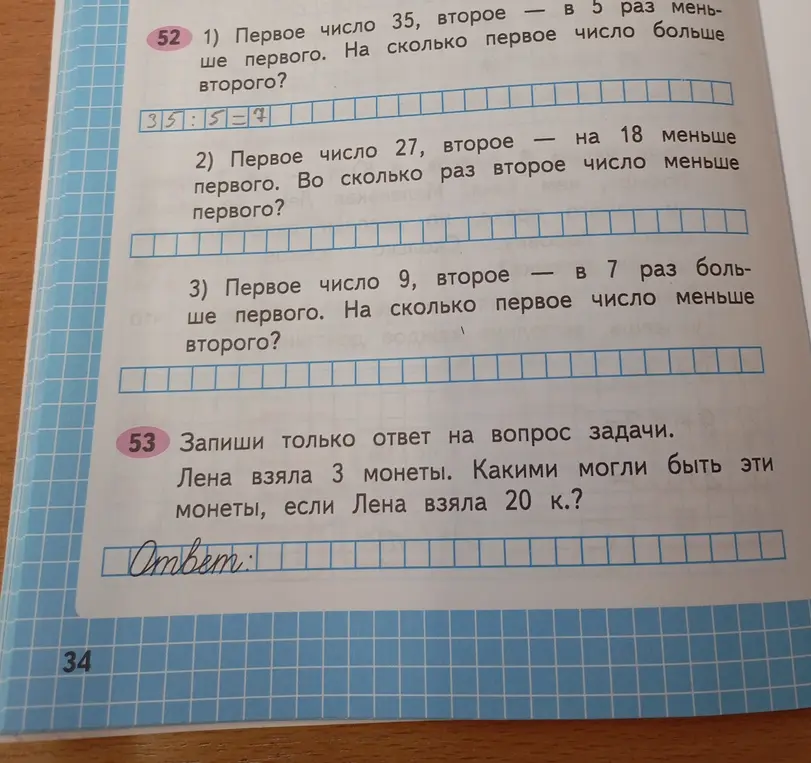 52 1) Первое число 35, второе — в 5 раз мень-
ше первого. На сколько первое число больше
второго?
35:5=7
2) Первое число 27, второе — на 18 меньше
первого. Во сколько раз второе число меньше
первого?
3) Первое число 9, второе — в 7 раз боль-
ше первого. На сколько первое число меньше
второго?
53 Запиши только ответ на вопрос задачи.
Лена взяла 3 монеты. Какими могли быть эти
монеты, если Лена взяла 20 к.?
Ответ:
34